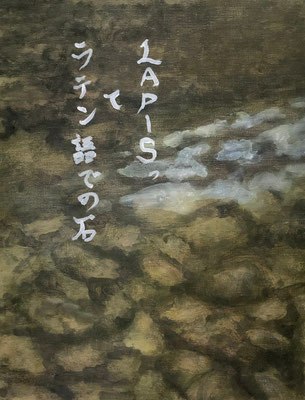 LAPISって
ラテン語での石